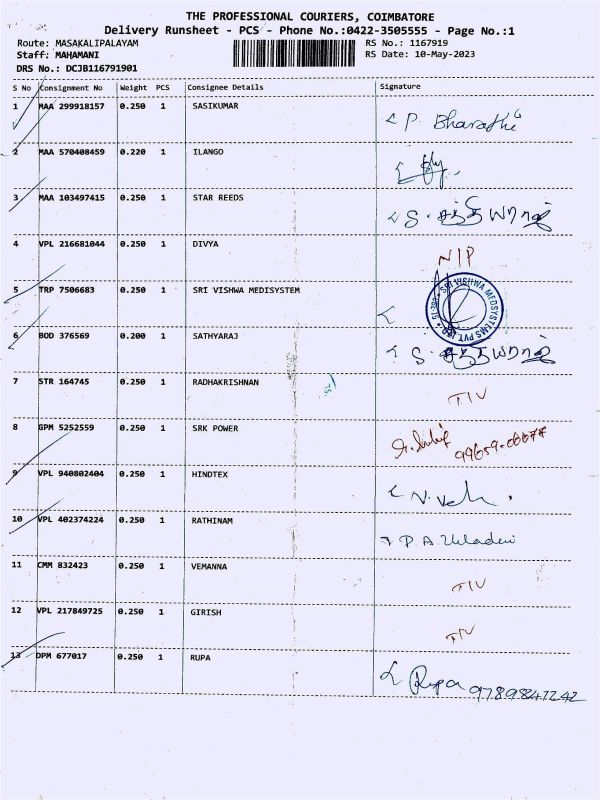 THE PROFESSIONAL COURIERS, COIMBATORE
Delivery Runsheet - PCS - Phone No.:0422-3505555 - Page No.:1
Route: MASAKALIPALAYAM
RS No.: 1167919
Staff: MAHAMANI
RS Date: 10-May-2023
DRS No.: DCJB116791901
S No Consignment No Weight PCS Consignee Details Signature
1 MAA 299918157 0.250 1 SASIKUMAR
P. Bharathi
2 MAA 570408459 0.220 1 ILANGO
3 MAA 103497415 0.250 1 STAR REEDS
S. சத்தியராஜ்
4 VPL 216681044 0.250 1 DIVYA
N/P
5 TRP 7506683 0.250 1 SRI VISHWA MEDISYSTEM
SRI VISHWA MEDSYSTEMS PVT. LTD.
6 BOD 376569 0.200 1 SATHYARAJ
S. சத்தியராஜ்
7 STR 164745 0.250 1 RADHAKRISHNAN
TIV
8 GPM 5252559 0.250 1 SRK POWER
9 VPL 940802404 0.250 1 HINDTEX
10 VPL 402374224 0.250 1 RATHINAM
11 CMM 832423 0.250 1 VEMANNA
TIV
12 VPL 217849725 0.250 1 GIRISH
TIV
13 DPM 677017 0.250 1 RUPA
Rupa